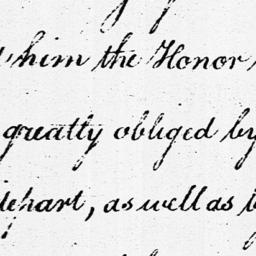 him the Honor
greatly obliged by
depart, as well as